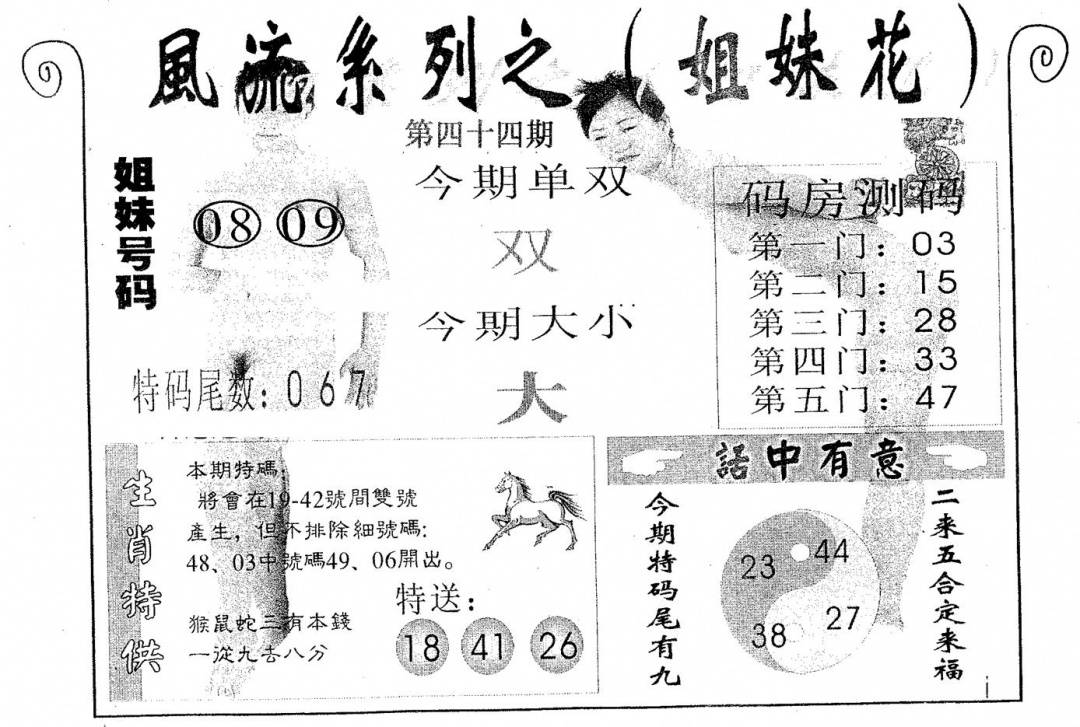 風流系列之（姐妹花）
第四十四期
姐妹号码
08 09
特码尾数：067
今期单双
双
今期大小
大
码房测码
第一门：03
第二门：15
第三门：28
第四门：33
第五门：47
生肖特供
本期特碼：
將會在19-42號間雙號
產生，但不排除細號碼：
48、03中號碼49、06開出。
猴鼠蛇三有本錢
一從九去八分
特送：
18 41 26
話中有意
今期特码尾有九
23 44
38 27
二来五合定来福